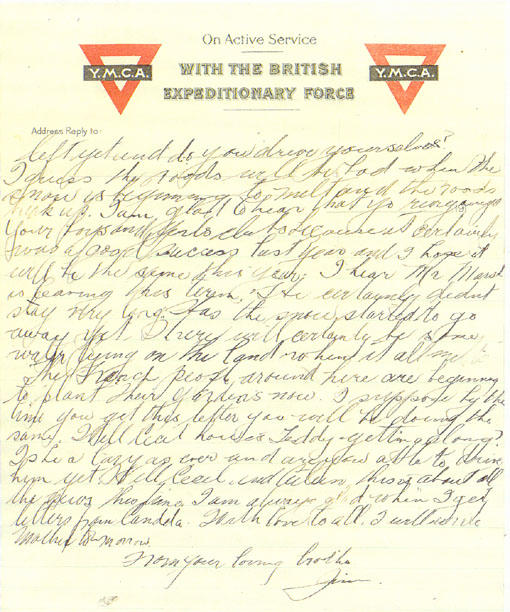 On Active Service
Y.M.C.A. WITH THE BRITISH Y.M.C.A.
EXPEDITIONARY FORCE
Address Reply to:
left yet and do you drive yourselves?
I guess the roads will be bad when the
snow is beginning to melt and the roads
break up. I am glad to hear that
your boys and girls club because it certainly
was a good success last year and I hope it
will be the same this year. I hear Mr Marsh
is leaving this term. He certainly didnt
stay very long. Has the snow started to go
away yet. There will certainly be some
water lying on the land when it all melts
The French people around here are beginning
to plant their gardens now. I suppose by the
time you get this letter you will be doing the
same. Well Cecil how is Teddy getting along?
Is he a lazy as ever and are you able to drive
him yet. Well Cecil and this is about all
the news this time I am always glad when I get
letters from Canada. With love to all. I will write
Mother tomorrow
From your loving brother
Jim